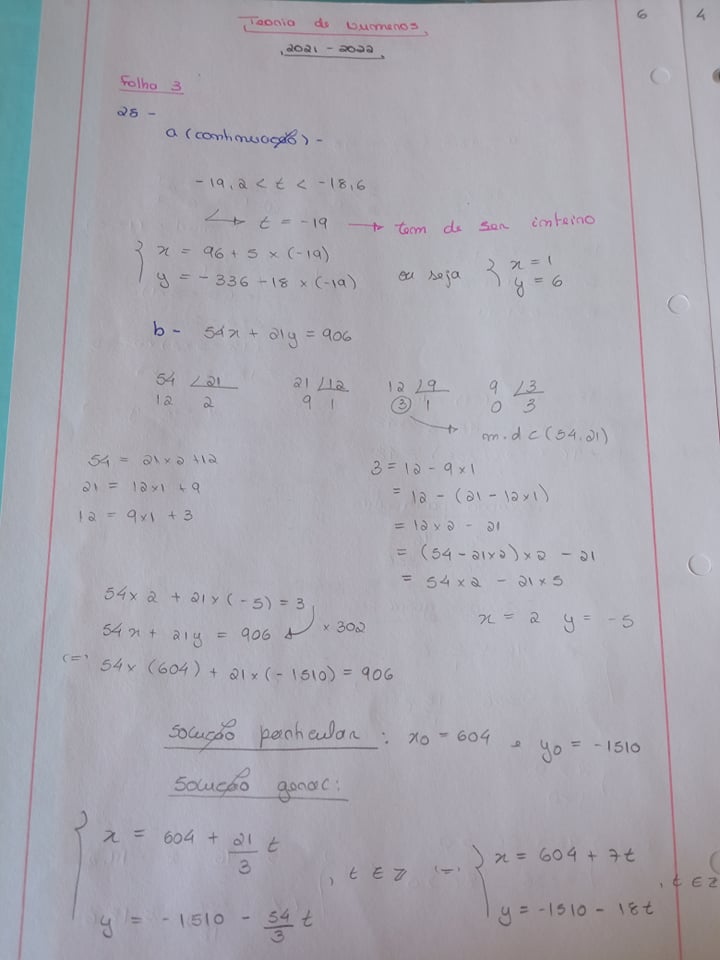 6 4
Teoria de Números
2021 - 2022
Folha 3
28 -
a (continuação) -
-19,2 < t < -18,6
↳ t = -19 → tem de ser inteiro
{ x = 96 + 5 × (-19)
{ y = -336 - 18 × (-19)
ou seja { x = 1
{ y = 6
b - 54x + 21y = 906
54 ∠21 21 ∠12 12 ∠9 9 ∠3
12 2 9 1 3 1 0 3
→ m.d c (54,21)
54 = 21×2 +12
21 = 12×1 + 9
12 = 9×1 + 3
3 = 12 - 9×1
= 12 - (21 - 12×1)
= 12×2 - 21
= (54 - 21×2)×2 - 21
= 54×2 - 21×5
x = 2 y = -5
54× 2 + 21×(-5) = 3
54x + 21y = 906 × 302
(=) 54× (604) + 21×(-1510) = 906
Solução particular : x0 = 604 e y0 = -1510
Solução geral:
{ x = 604 + 21/3 t
{ y = -1510 - 54/3 t
, t ∈ Z (=)
{ x = 604 + 7t
{ y = -1510 - 18t
, t ∈ Z